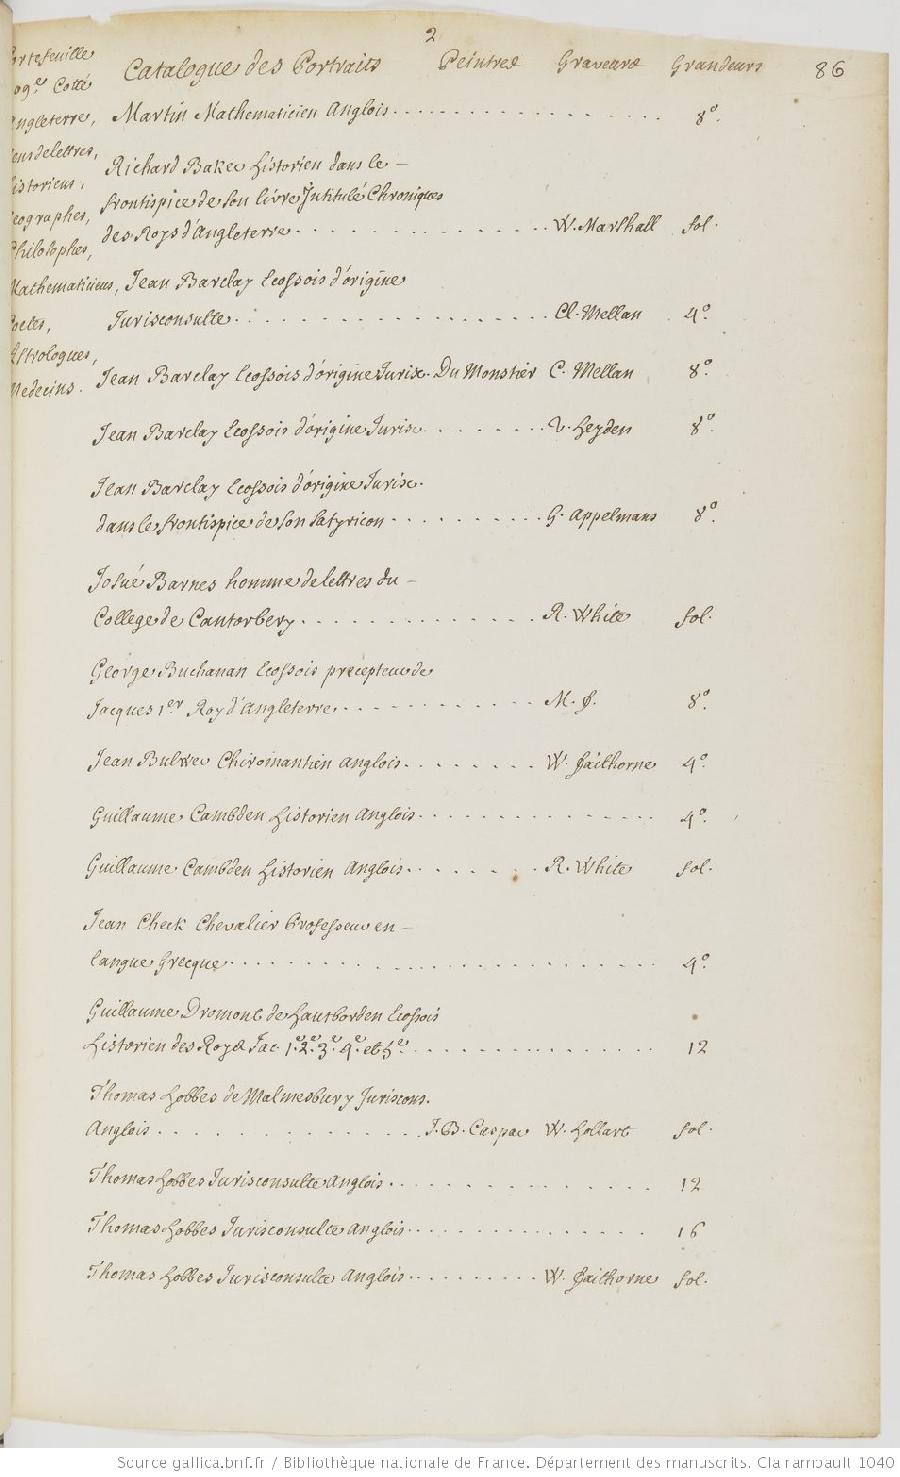 2
Catalogue des Portraits Peintres Graveurs Grandeurs 86
ortefeuille
109.e Cotté
Angleterre,
Gens de lettres,
historiens,
Geographes,
Philosophes,
Mathematiciens,
Poetes,
Astrologues,
Medecins.
Martin Mathematicien Anglois 8º
Richard Baker historien dans le
frontispice de son livre Intitulé Chroniques
des Roys d'Angleterre W. Marshall fol.
Jean Barclay Ecossois d'origine
Jurisconsulte Cl. Mellan 4º
Jean Barclay Ecossois d'origine Jurisc. Du Monstier C. Mellan 8º
Jean Barclay Ecossois d'origine Jurisc. V. Heyden 8º
Jean Barclay Ecossois d'origine Jurisc.
dans le frontispice de son Satyricon G. Appelmans 8º
Josué Barnes homme de lettres du
College de Cantorbery R. White fol.
George Buchanan Ecossois precepteur de
Jacques 1er Roy d'Angleterre M. f. 8º
Jean Bulwer Chiromantien Anglois W. faithorne 4º
Guillaume Cambden historien Anglois 4º
Guillaume Cambden historien Anglois R. White fol.
Jean Cheek Chevalier Professeur en
langue Grecque 4º
Guillaume Dromont de hautborden Ecossois
historien des Roys Jac. 1.e 2.e 3.e 4.e et 5.e 12
Thomas hobbes de Malmesbury Juriscons.
Anglois J. B. Caspar W. hollart fol.
Thomas hobbes Jurisconsulte Anglois 12
Thomas hobbes Jurisconsulte Anglois 16
Thomas hobbes Jurisconsulte Anglois W. faithorne fol.
Source gallica.bnf.fr / Bibliothèque nationale de France. Département des manuscrits. Clairambault 1040